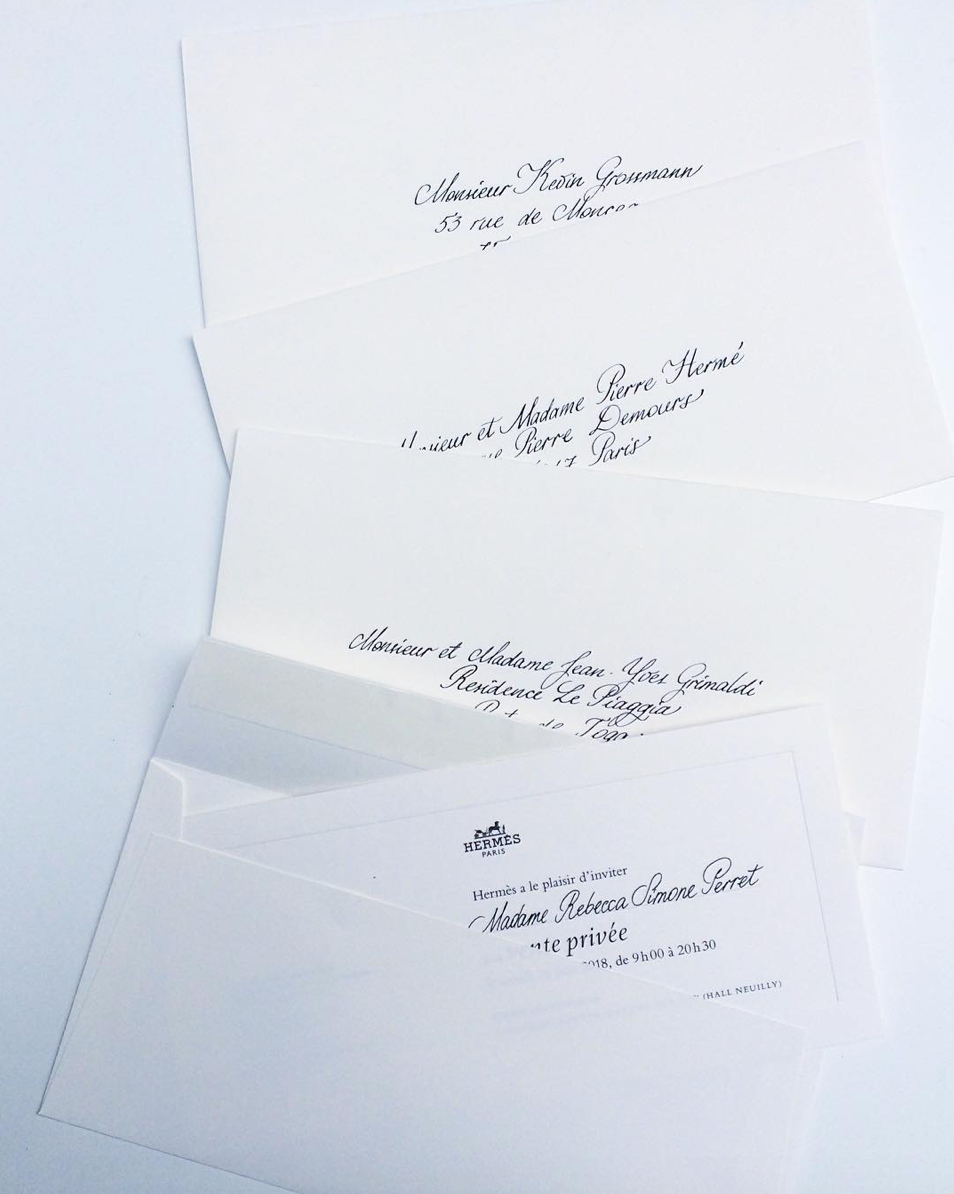 Monsieur Kevin Grossmann
53 rue de
et Madame Pierre Hermé
Pierre Demours
Paris
Monsieur et Madame Jean-Yves Grimaldi
Residence Le Piaggia
de Toga
HERMÈS
PARIS
Hermès a le plaisir d'inviter
Madame Rebecca Simone Perret
privée
de 9h00 à 20h30
(HALL NEUILLY)